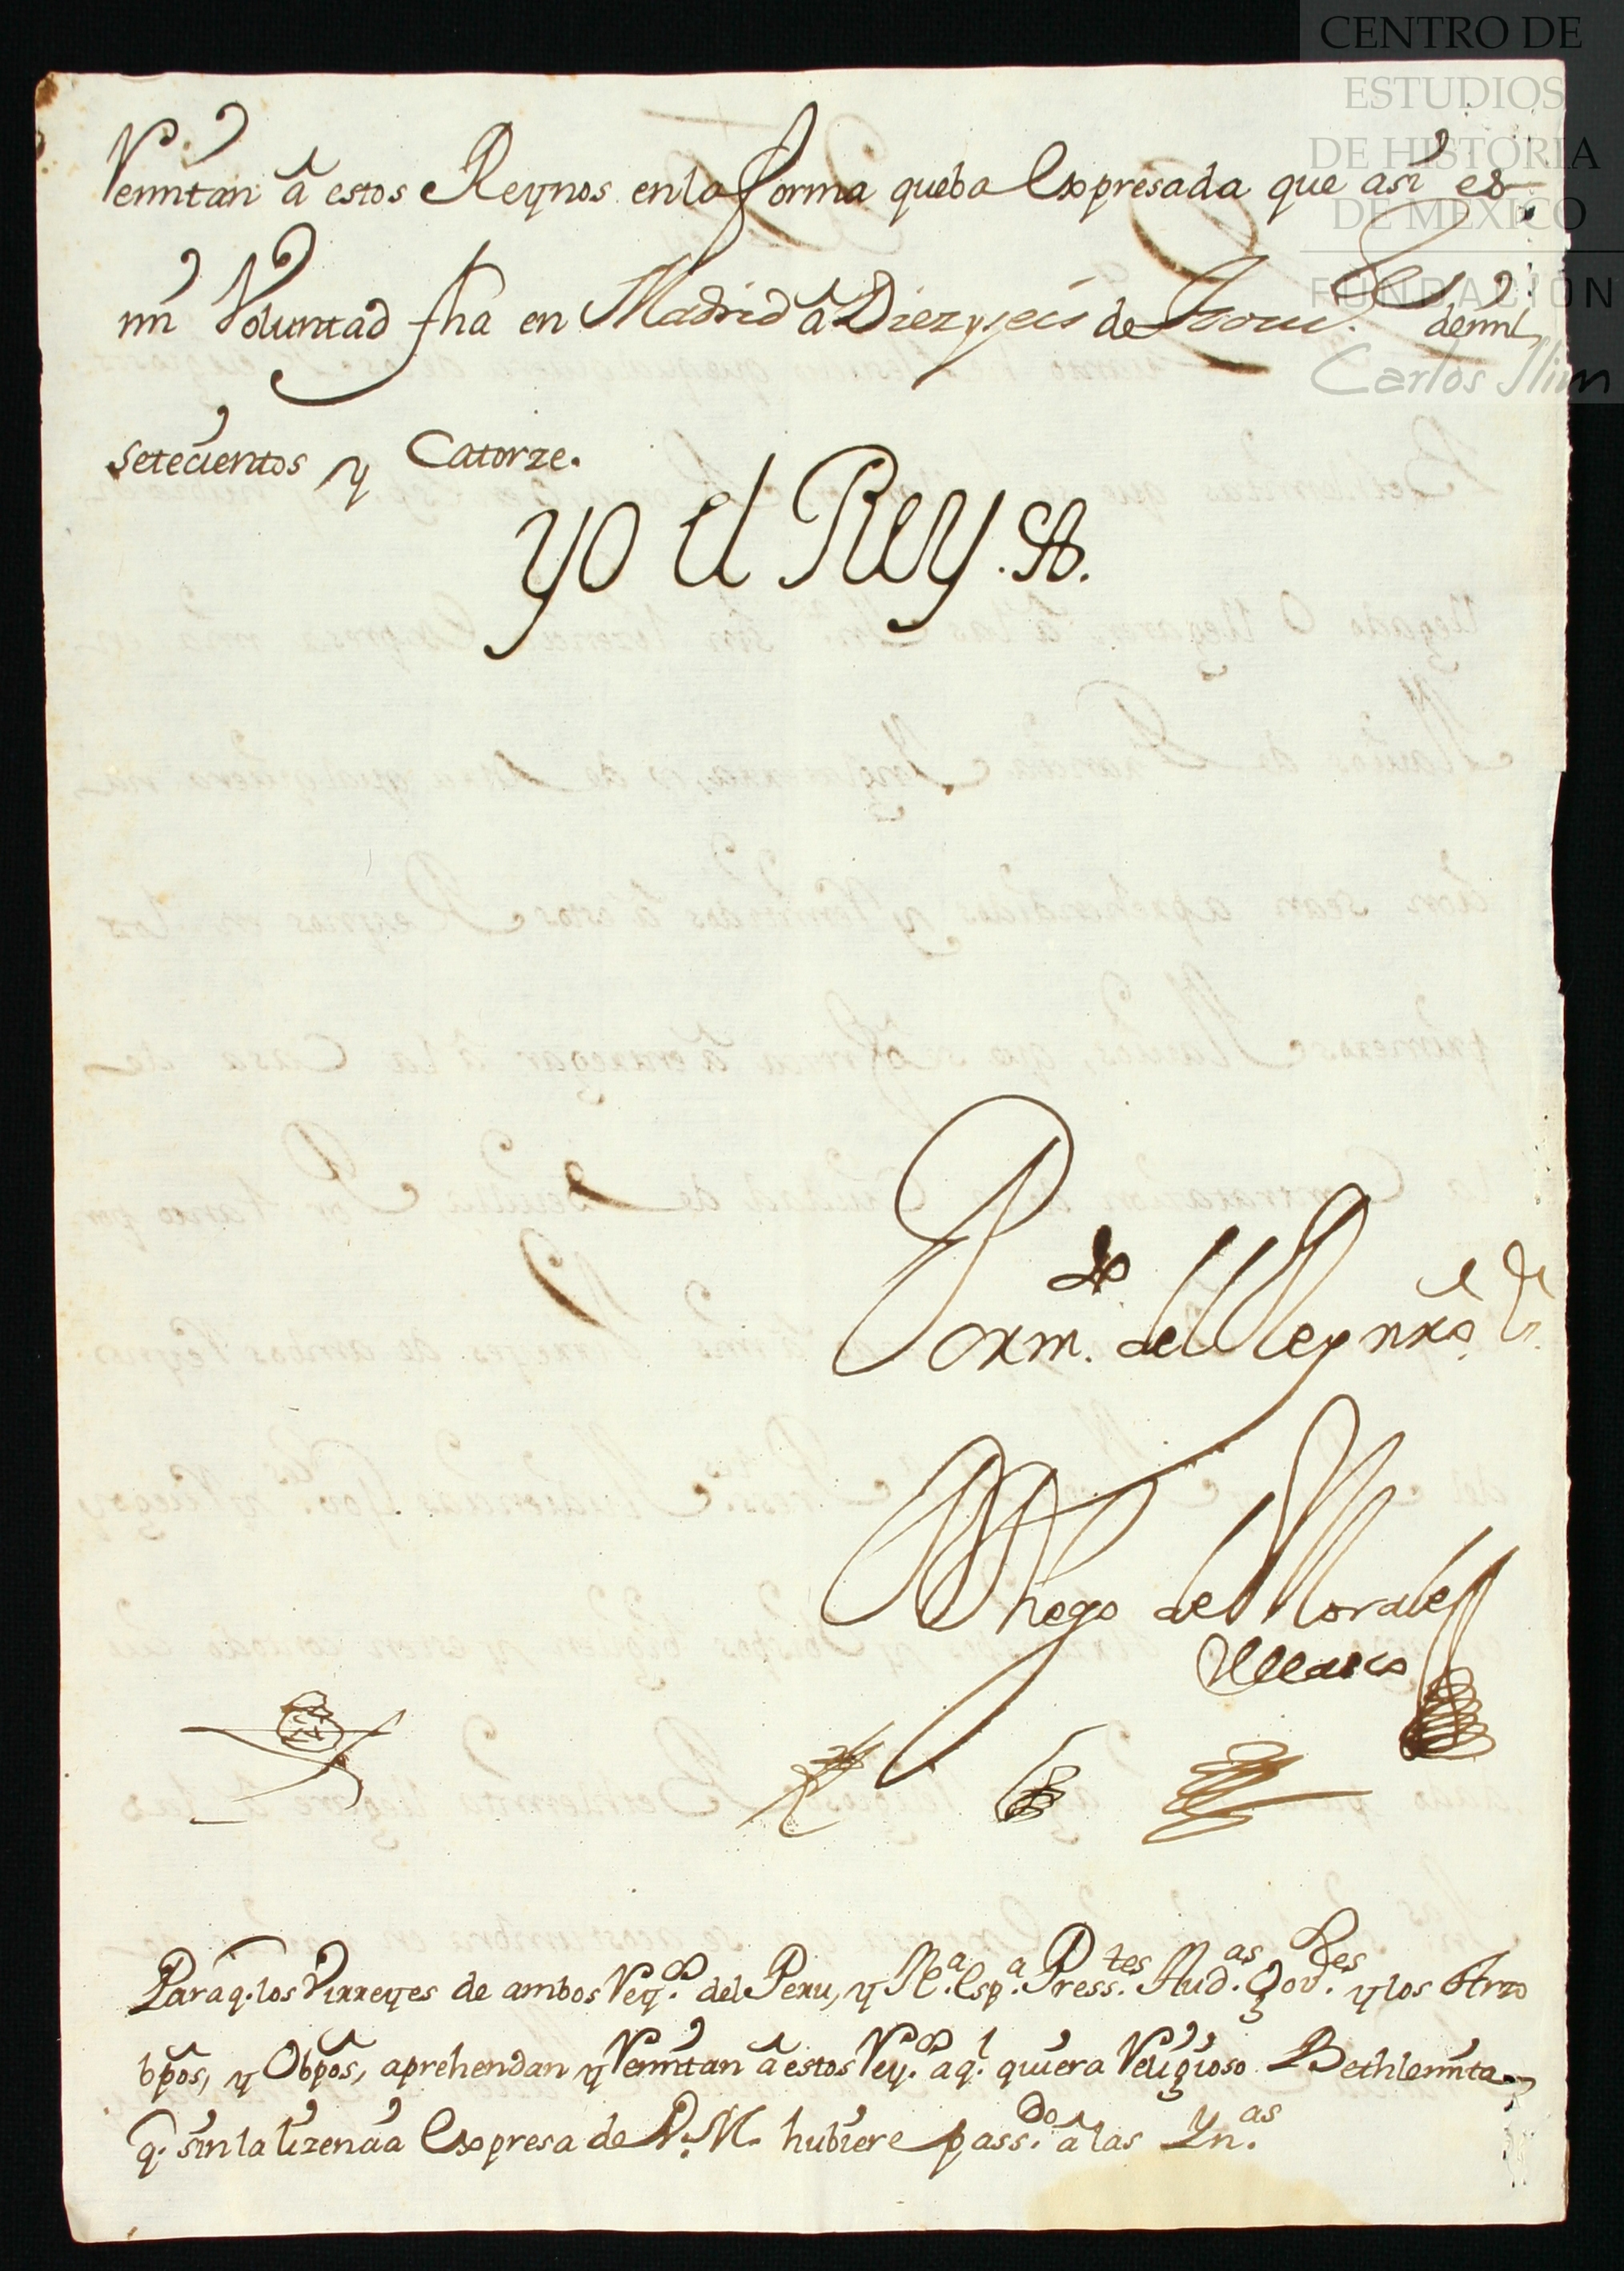 CENTRO DE
ESTUDIOS
DE HISTORIA
DE MEXICO
FUNDACIÓN
Carlos Slim
Remitan â estos Reynos en la forma que ba Expresada que asi es
mi Voluntad fha en Madrid â Diez y seis de de mil
setecientos y Catorze.
yo el Rey.
Por m.do del Rey nro s.r
Dhego de Morales
Velasco
Para q. los Virreyes de ambos Rey.os del Peru, y N.a Esp.a Press.tes Aud.as Gov.res y los Arzo
bpôs, y Obpôs, aprehendan y Remitan â estos Rey.os â q.l quiera Religioso Bethlemita
q. sin la lizencia Expresa de V. M. hubiere pass.do â las Yn.as